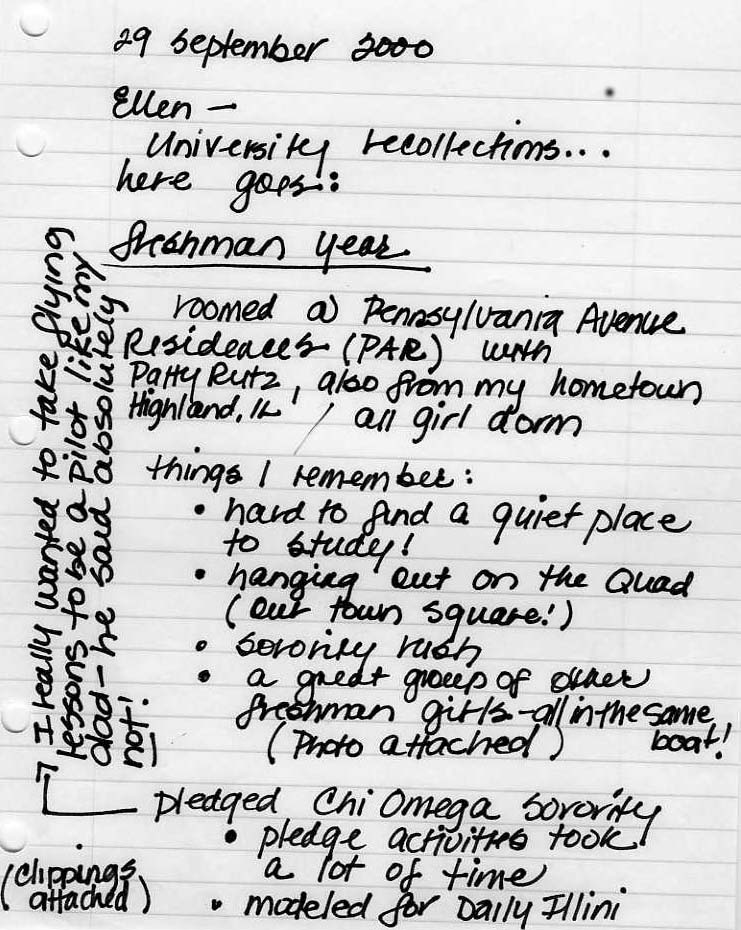 29 September 2000
Ellen —
University recollections...
here goes:
freshman year
roomed @ Pennsylvania Avenue
Residences (PAR) with
Patty Rutz, also from my hometown
Highland, IL / all girl dorm
things I remember:
• hard to find a quiet place
to study!
• hanging out on the Quad
(our town square!)
• sorority rush
• a great group of other
freshman girls - all in the same
boat!
(Photo attached)
pledged Chi Omega sorority
• pledge activities took
a lot of time
(clippings
attached)
• modeled for Daily Illini
I really wanted to take flying
lessons to be a pilot like my
dad - he said absolutely
not!